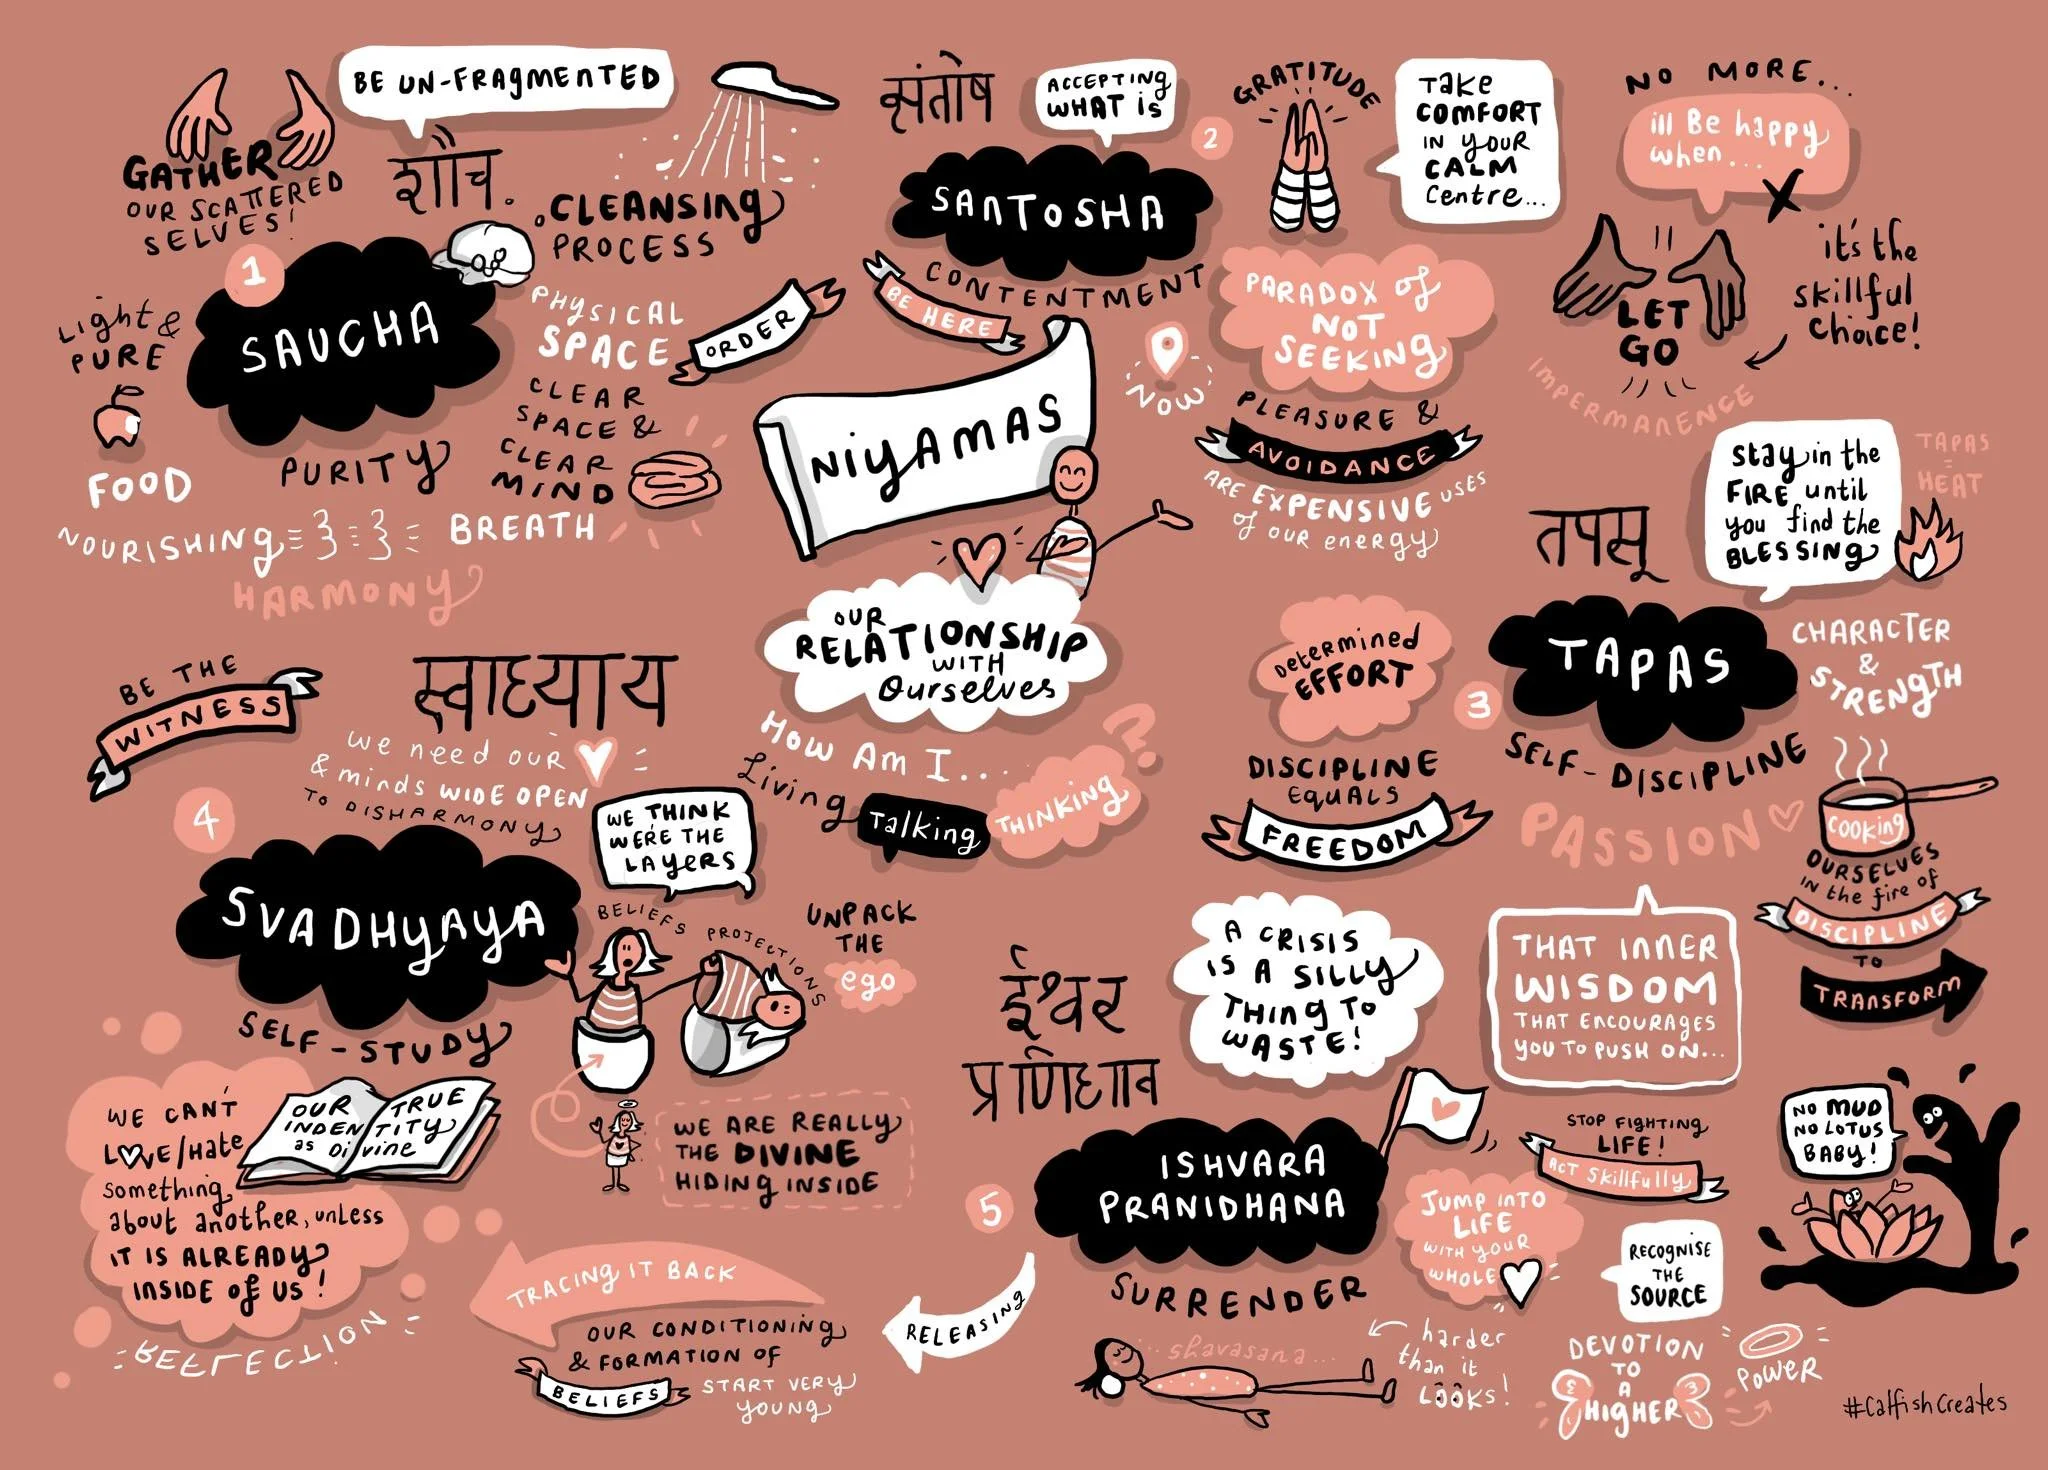 BE UN-FRAGMENTED
GATHER
OUR SCATTERED
SELVES!
शौच
.CLEANSING
PROCESS
1
SAUCHA
PURITY
Light &
PURE
FOOD
NOURISHING
BREATH
HARMONY
PHYSICAL
SPACE
ORDER
CLEAR
SPACE &
CLEAR
MIND
संतोष
ACCEPTING
WHAT is
2
SANTOSHA
CONTENTMENT
BE HERE
GRATITUDE
Take
COMFORT
IN YOUR
CALM
Centre...
NO MORE...
ill Be happy
when...
LET
GO
it's the
skillful
choice!
IMPERMANENCE
PARADOX of
NOT
SEEKING
NOW
PLEASURE &
AVOIDANCE
ARE EXPENSIVE USES
of our energy
NiyAMAS
OUR
RELATIONSHIP
WITH
Ourselves
How Am I...
Living
Talking
THINKING
?
तपसू
Stay in the
FIRE until
you find the
BLESSING
TAPAS
=
HEAT
3
TAPAS
SELF-DISCIPLINE
CHARACTER
&
STRENGTH
Determined
EFFORT
DISCIPLINE
EQUALS
FREEDOM
PASSION
COOKING
OURSELVES
IN the fire of
DISCIPLINE
TO
TRANSFORM
THAT INNER
WISDOM
THAT ENCOURAGES
YOU TO PUSH ON...
BE THE
WITNESS
स्वाध्याय
we need our
& minds WIDE OPEN
TO DISHARMONY
4
SVADHyAyA
SELF-STUDY
WE THINK
WE'RE THE
LAYERS
BELIEFS
PROJECTIONS
UNPACK
THE
ego
WE ARE REALLY
THE DIVINE
HIDING INSIDE
OUR TRUE
INDENTITY
as Divine
WE CAN'T
LOVE/HATE
something
about another, unless
IT IS ALREADY
INSIDE of US!
REFLECTION
TRACING IT BACK
OUR CONDITIONING
& FORMATION OF
BELIEFS
START VERY
YOUNG
RELEASING
ईश्वर
प्रणिधान
A CRISIS
IS A SILLY
THING TO
WASTE!
5
ISHVARA
PRANIDHANA
SURRENDER
...shavasana...
harder
than it
LOOKS!
JUMP INTO
LIFE
WITH YOUR
WHOLE
STOP FIGHTING
LIFE!
ACT Skillfully
RECOGNISE
THE
SOURCE
DEVOTION
TO
A
HIGHER
POWER
NO MUD
NO LOTUS
BABY!
#CatfishCreates